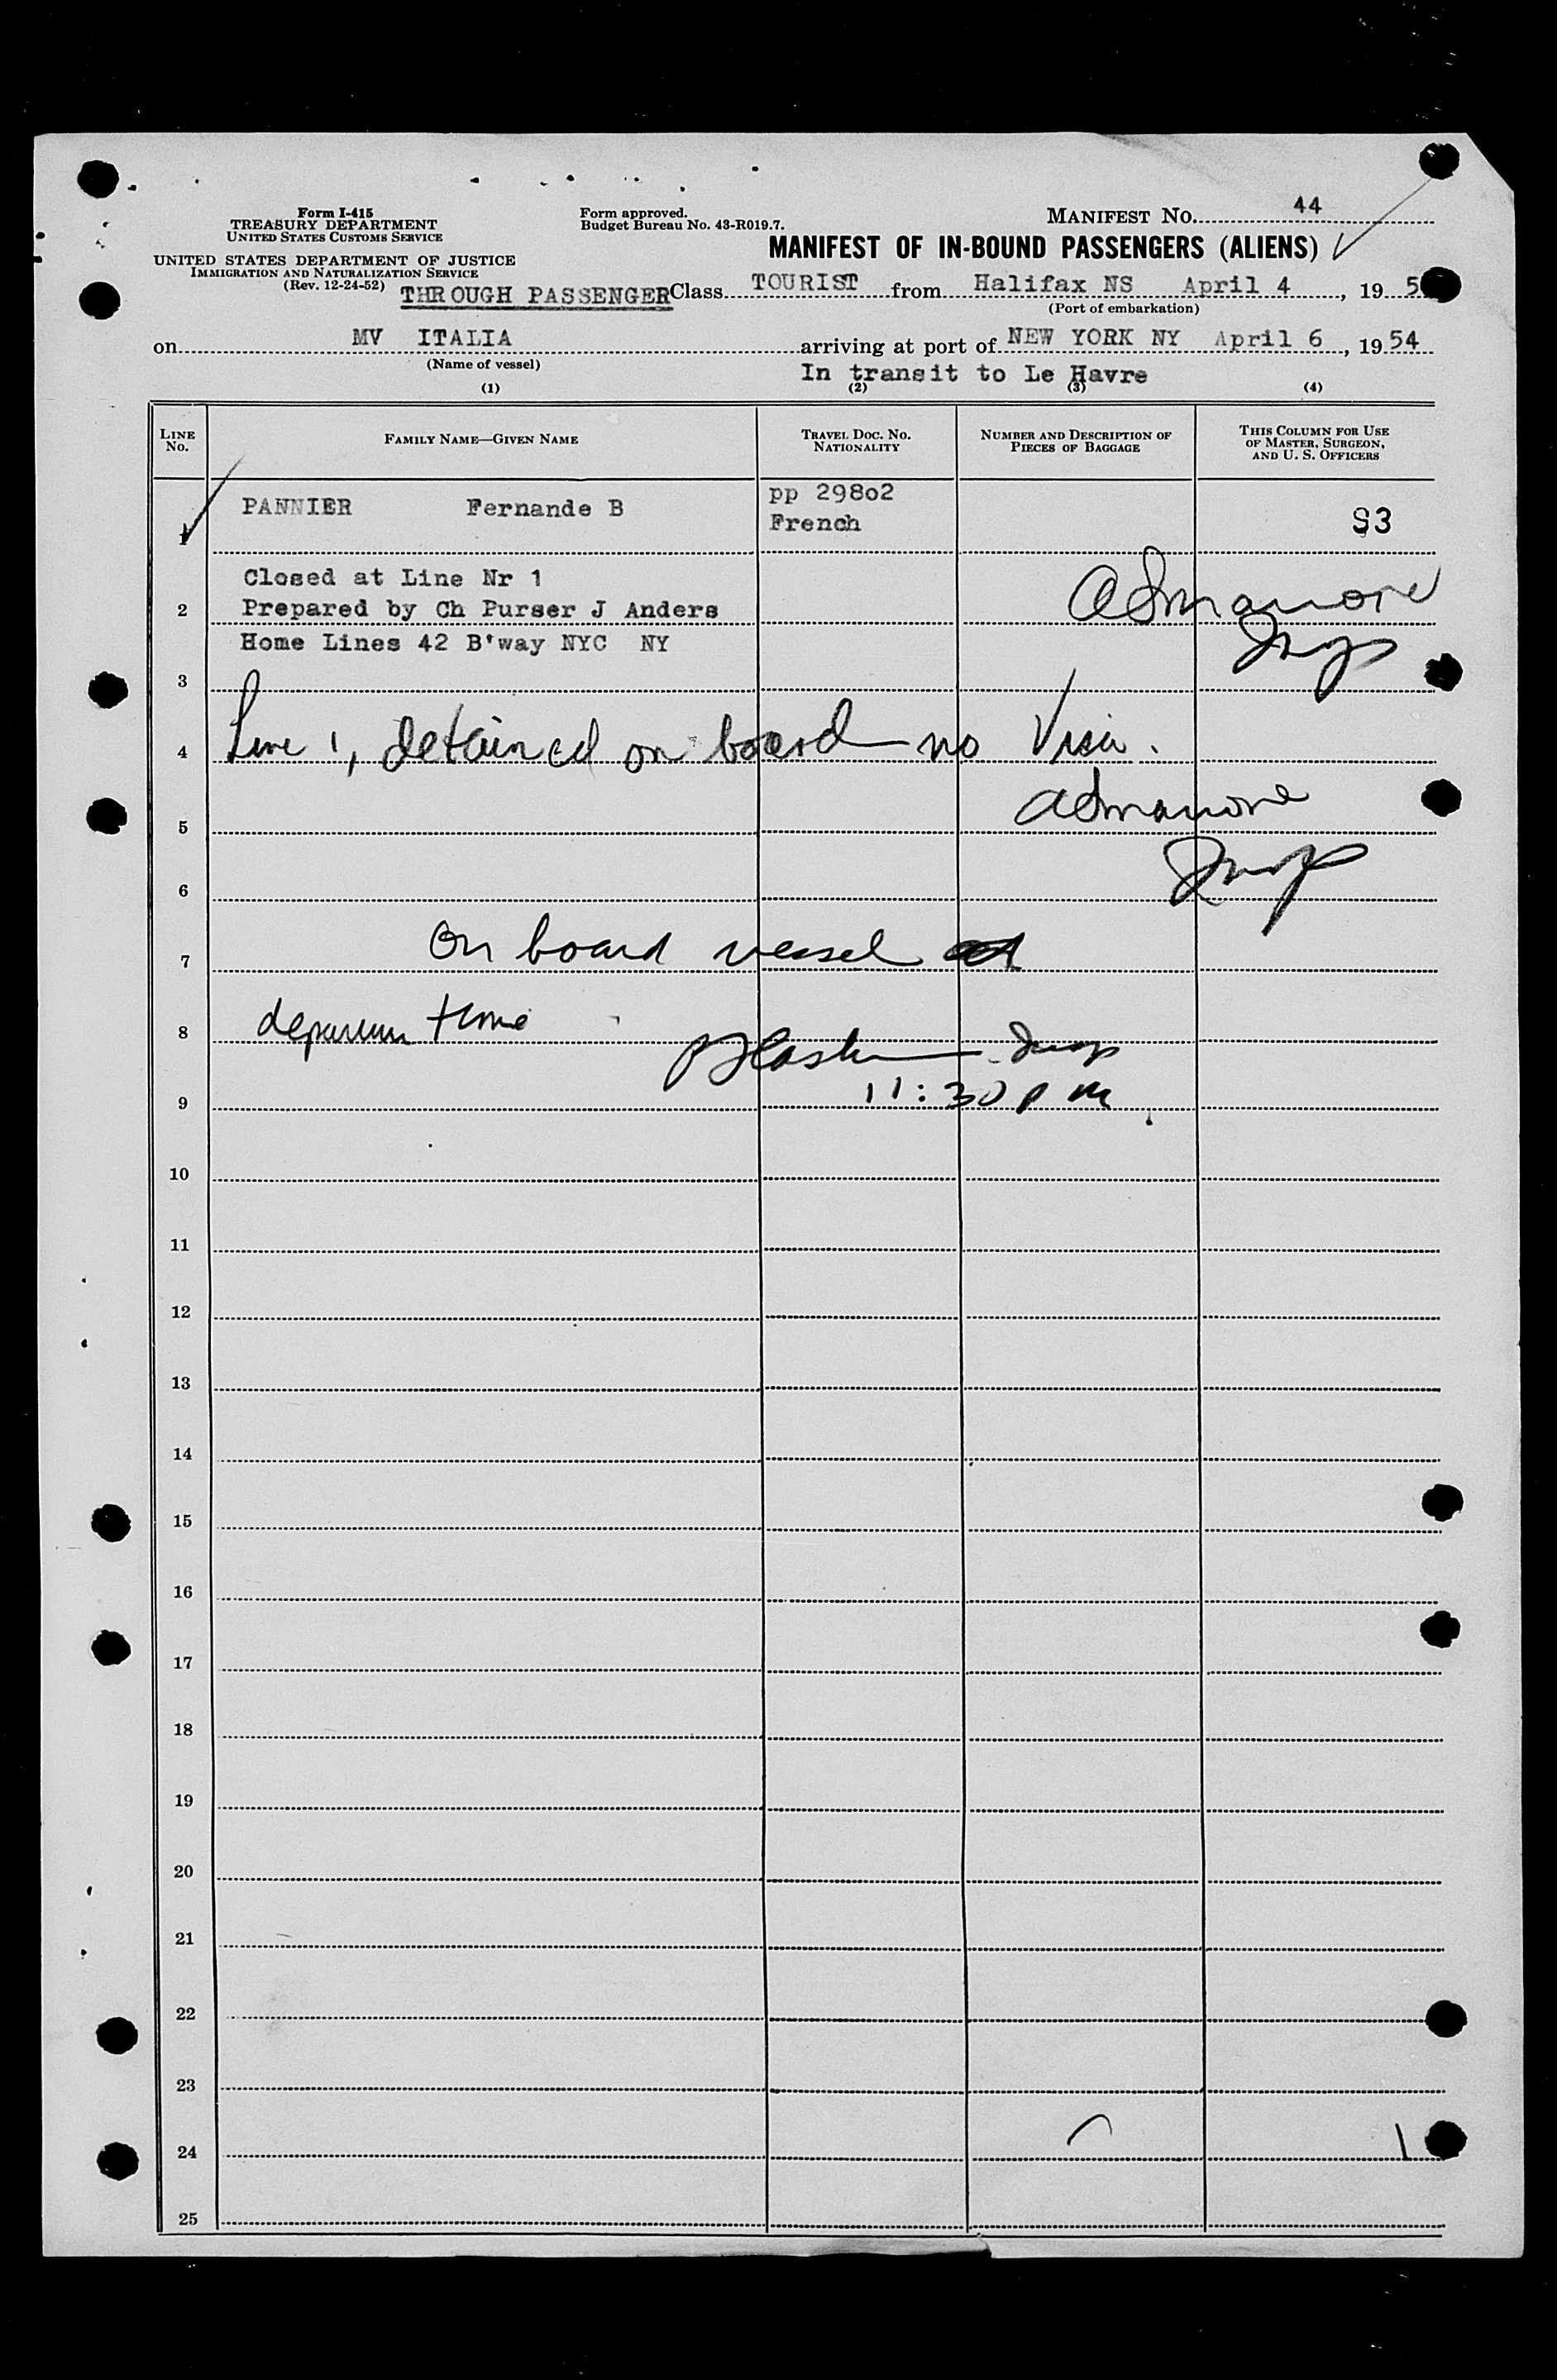 Form I-415
TREASURY DEPARTMENT
UNITED STATES CUSTOMS SERVICE
UNITED STATES DEPARTMENT OF JUSTICE
IMMIGRATION AND NATURALIZATION SERVICE
(Rev. 12-24-52)
Form approved.
Budget Bureau No. 43-R019.7.
MANIFEST NO. 44
MANIFEST OF IN-BOUND PASSENGERS (ALIENS)
THROUGH PASSENGER Class TOURIST from Halifax NS April 4, 19 5
(Port of embarkation)
on MV ITALIA arriving at port of NEW YORK NY April 6, 19 54
(Name of vessel)
In transit to Le Havre
(1) (2) (3) (4)
LINE NO. FAMILY NAME—GIVEN NAME TRAVEL DOC. NO. NATIONALITY NUMBER AND DESCRIPTION OF PIECES OF BAGGAGE THIS COLUMN FOR USE OF MASTER, SURGEON, AND U. S. OFFICERS
1 PANNIER Fernande B pp 298o2 French S3
Closed at Line Nr 1
2 Prepared by Ch Purser J Anders
Home Lines 42 B'way NYC NY
3
4 Line 1, detained on board no Visa.
5
6
7 On board vessel at
8 departure time
11:30 P M
9
10
11
12
13
14
15
16
17
18
19
20
21
22
23
24
25